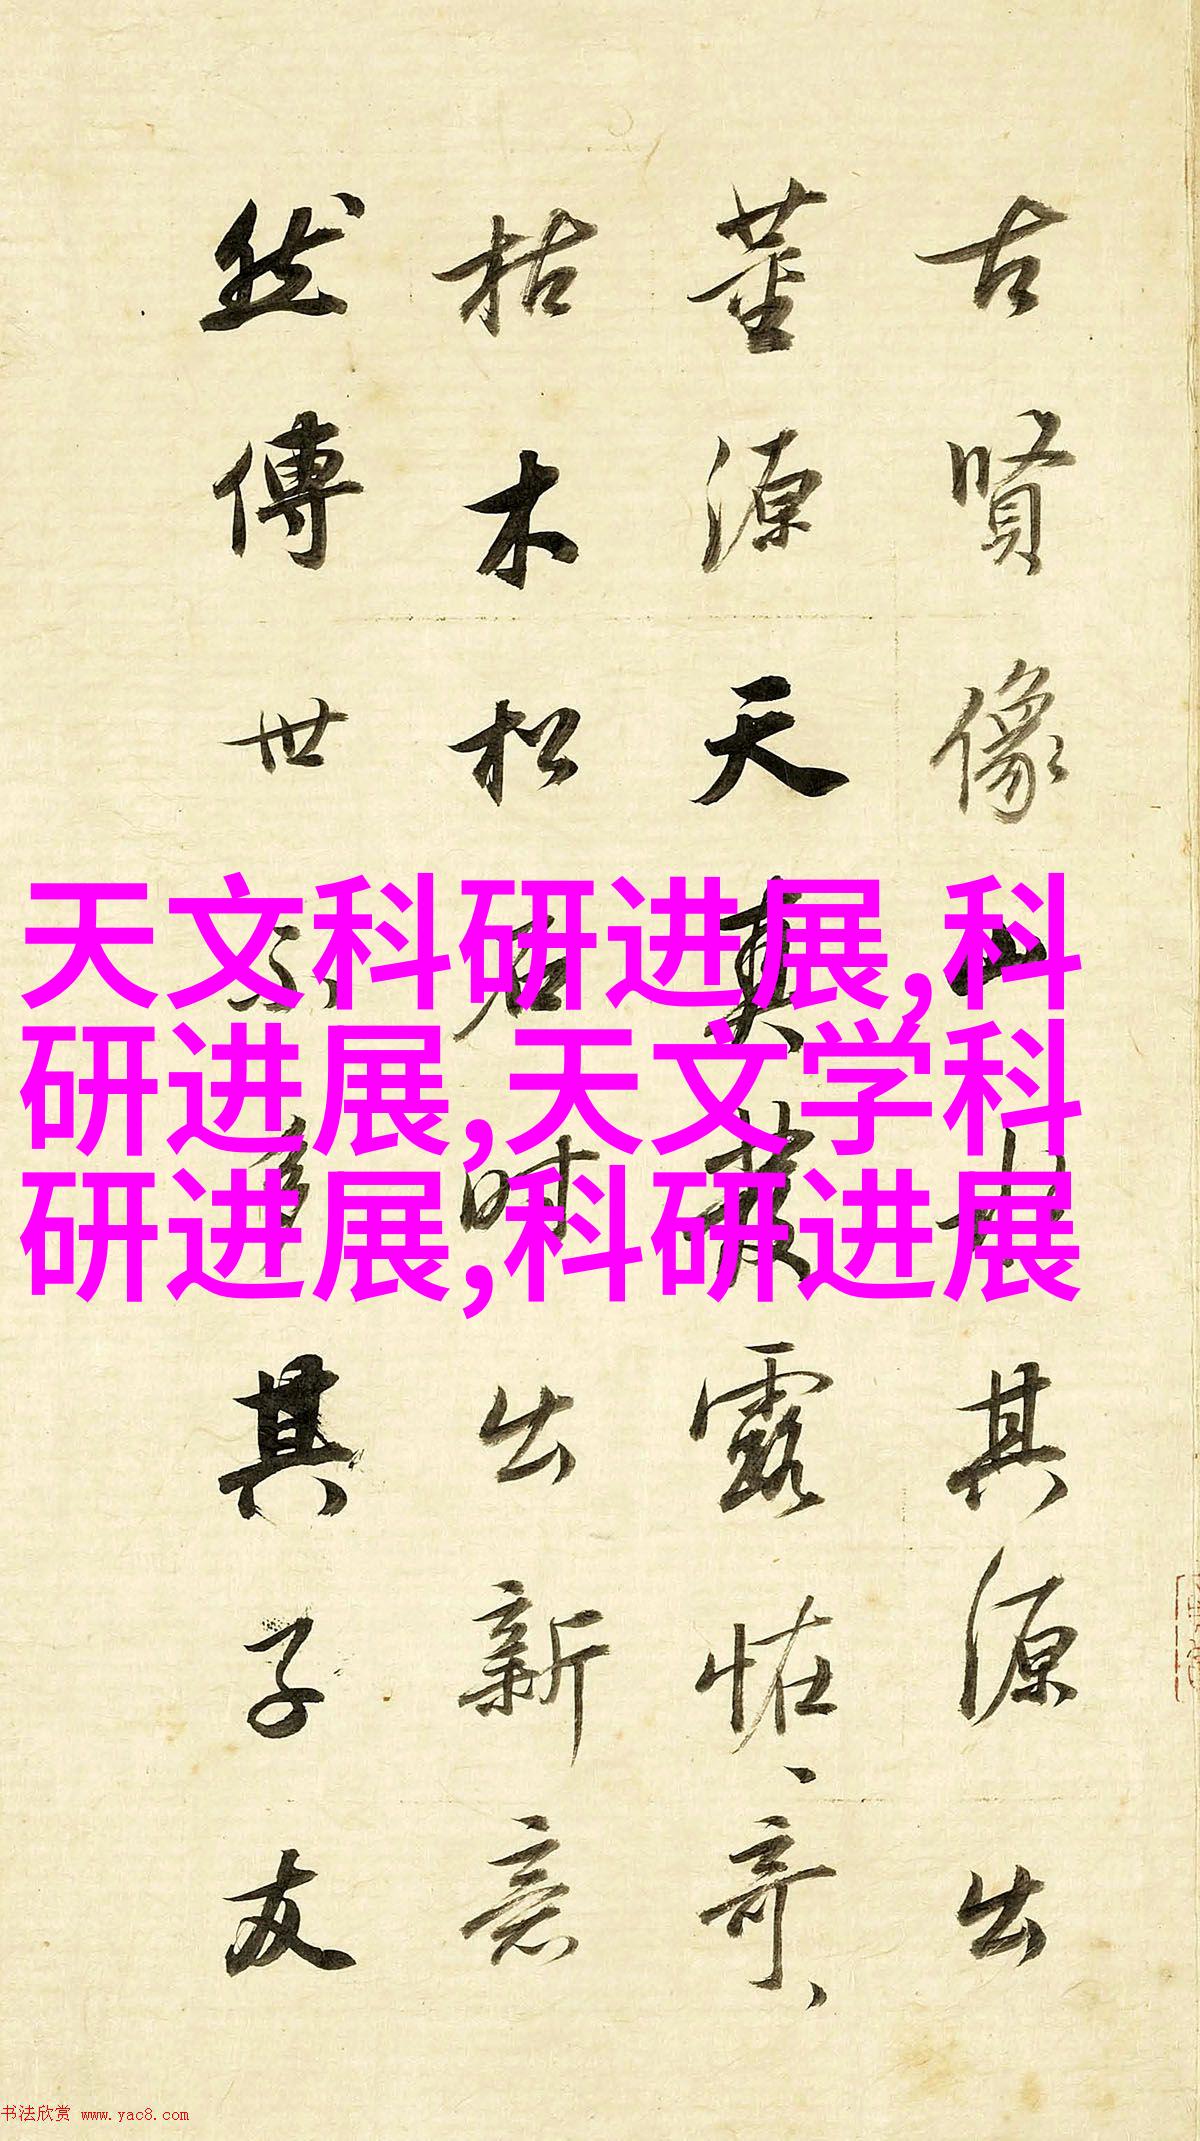 古賢像山水其源出
董源天真發露恠、奇、
枯木松石時出新意
然傳世不多其子友
天文科研进展,科
研进展,天文学科
研进展,科研进展
书法欣赏 www.yac8.com